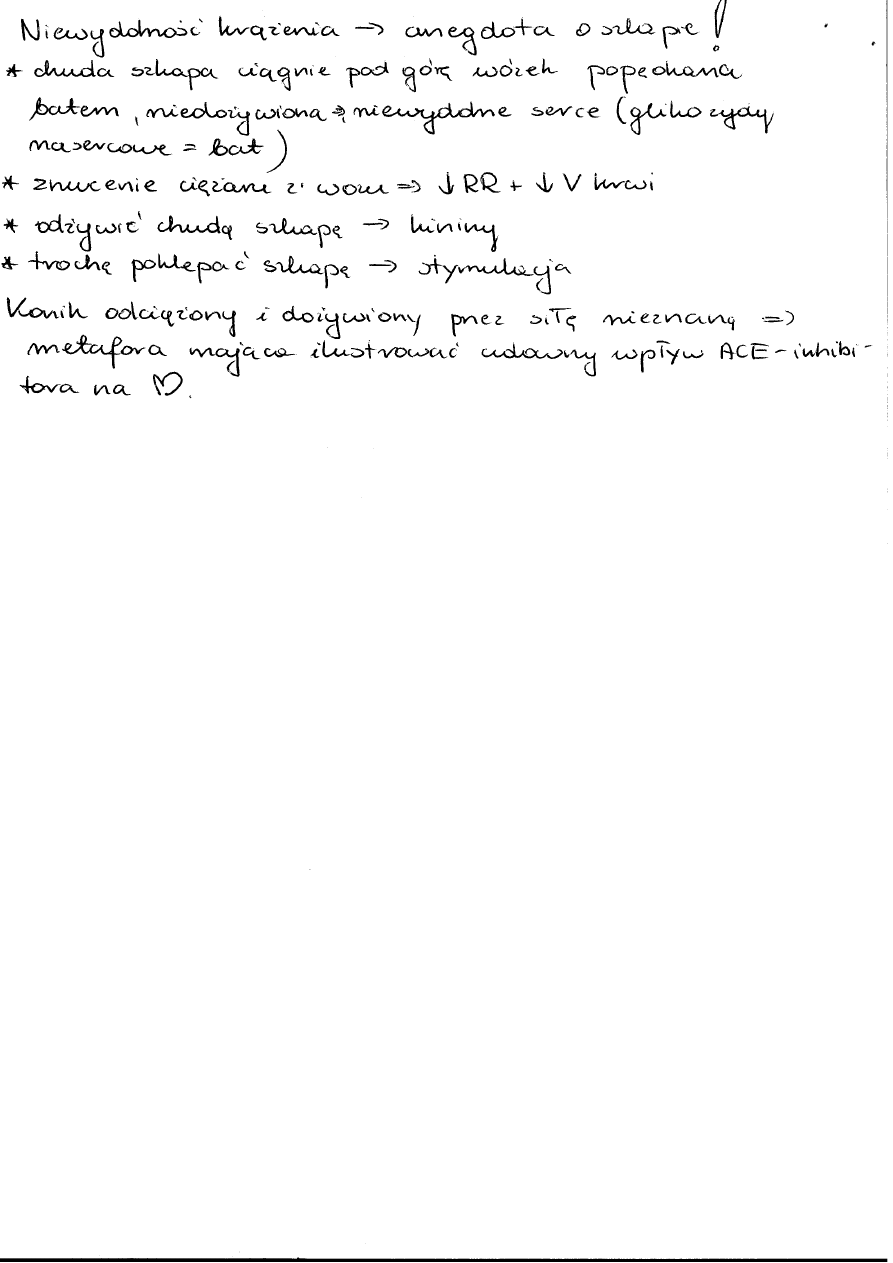 Niewydolność krążenia → anegdota o szkapie!
* chuda szkapa ciągnie pod górę wózek popędzana
batem, niedożywiona → niewydolne serce (glikozydy
nasercowe = bat)
* zrzucenie ciężaru z wozu => ↓ RR + ↓ V krwi
* odżywić chudą szkapę → kininy
* trochę poklepać szkapę → stymulacja
Konik odciążony i dożywiony przez siłę nieznaną =>
metafora mająca ilustrować cudowny wpływ ACE-inhibi-
tora na ♡.